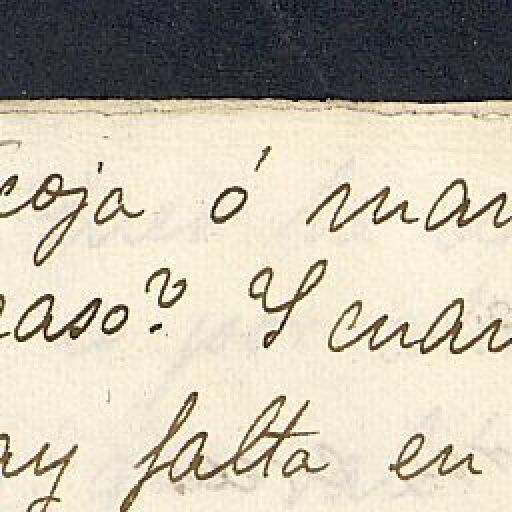 coja ó man
caso? Y cuan
ay falta en